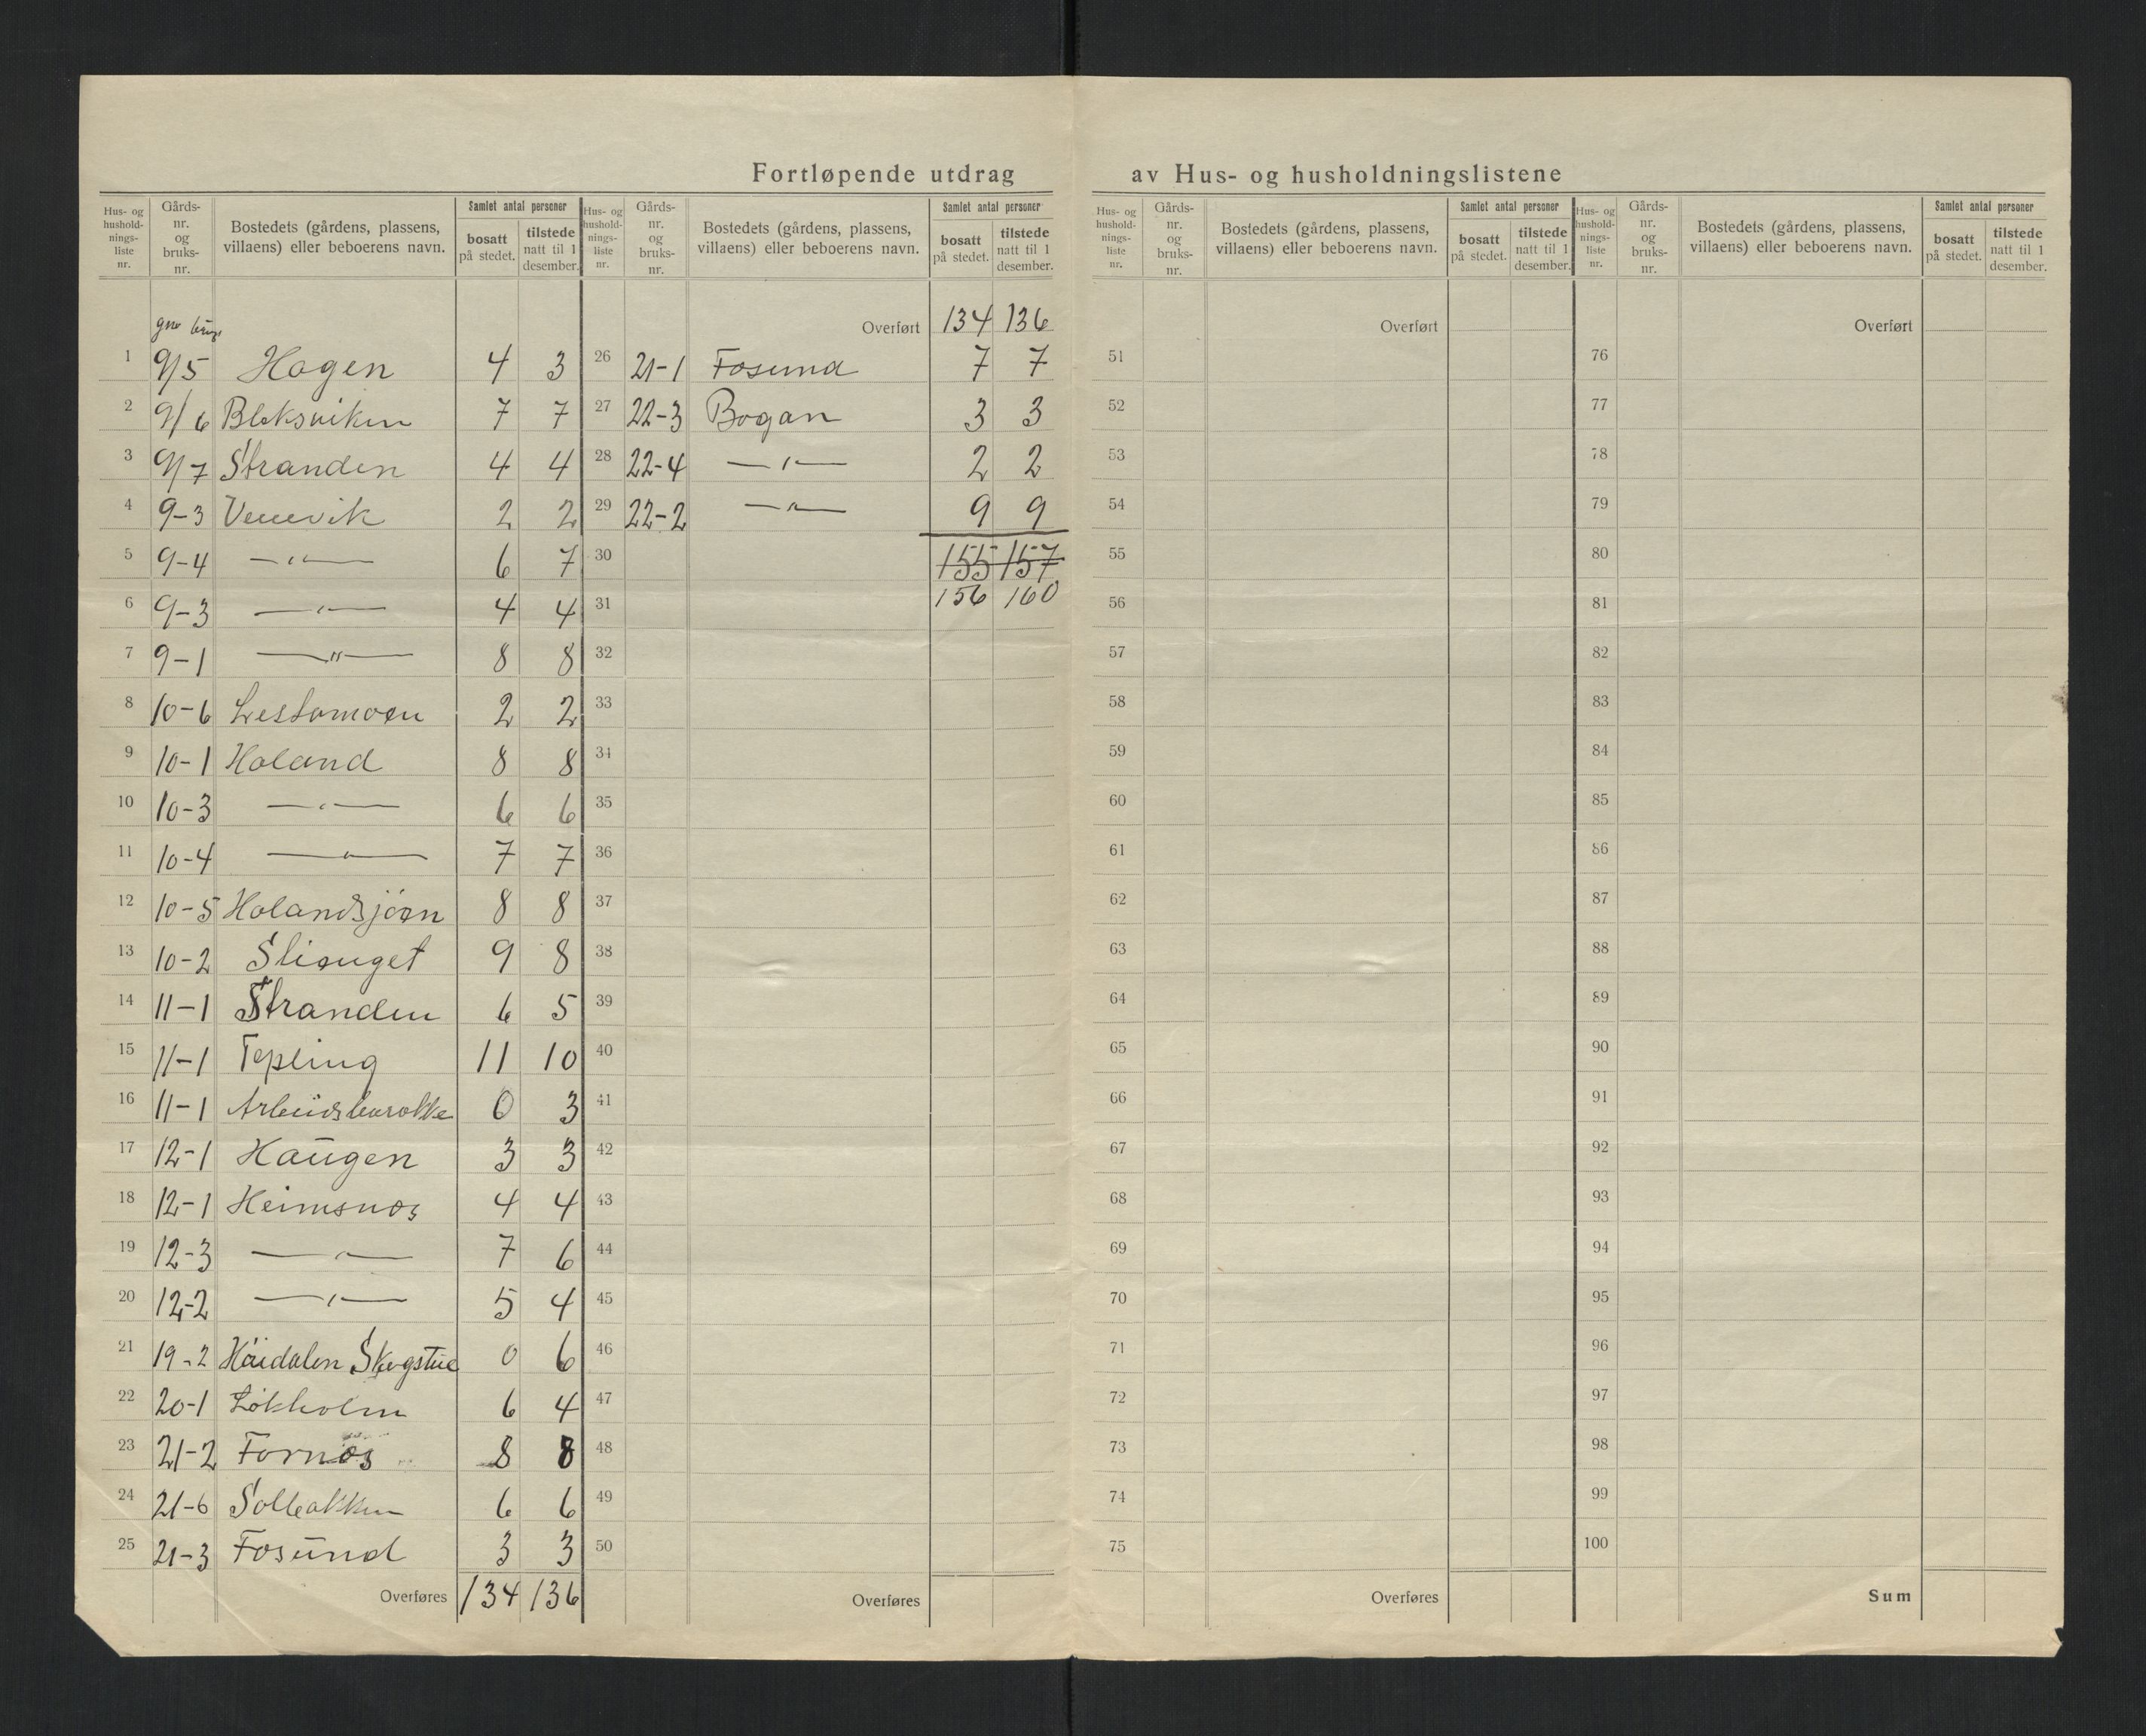 Fortløpende utdrag av Hus- og husholdningslistene
Hus- og hushold-nings-liste nr. Gårds-nr. og bruks-nr. Bostedets (gårdens, plassens, villaens) eller beboerens navn. Samlet antal personer bosatt på stedet. tilstede natt til 1 desember.
gnr brugs
1 9/5 Hagen 4 3
2 9/6 Bleksviken 7 7
3 9/7 Stranden 4 4
4 9-3 Venevik 2 2
5 9-4 —"— 6 7
6 9-3 —"— 4 4
7 9-1 —"— 8 8
8 10-6 Lestomoen 2 2
9 10-1 Haland 8 8
10 10-3 —"— 6 6
11 10-4 —"— 7 7
12 10-5 Holandsjøen 8 8
13 10-2 9 8
14 11-1 Stranden 6 5
15 11-1 Tepling 11 10
16 11-1 Arbeidsbarakke 0 3
17 12-1 Haugen 3 3
18 12-1 Heimsnes 4 4
19 12-3 —"— 7 6
20 12-2 —"— 5 4
21 19-2 Høidalen Skogstue 0 6
22 20-1 Løkholm 6 4
23 21-2 Fornes 8 8
24 21-6 Solbakken 6 6
25 21-3 Fosund 3 3
Overføres 134 136
Hus- og hushold-nings-liste nr. Gårds-nr. og bruks-nr. Bostedets (gårdens, plassens, villaens) eller beboerens navn. Samlet antal personer bosatt på stedet. tilstede natt til 1 desember.
Overført 134 136
26 21-1 Fosund 7 7
27 22-3 Bogan 3 3
28 22-4 —"— 2 2
29 22-2 —"— 9 9
30 155 157
31 156 160
32
33
34
35
36
37
38
39
40
41
42
43
44
45
46
47
48
49
50
Overføres
Hus- og hushold-nings-liste nr. Gårds-nr. og bruks-nr. Bostedets (gårdens, plassens, villaens) eller beboerens navn. Samlet antal personer bosatt på stedet. tilstede natt til 1 desember.
Overført
51
52
53
54
55
56
57
58
59
60
61
62
63
64
65
66
67
68
69
70
71
72
73
74
75
Overføres
Hus- og hushold-nings-liste nr. Gårds-nr. og bruks-nr. Bostedets (gårdens, plassens, villaens) eller beboerens navn. Samlet antal personer bosatt på stedet. tilstede natt til 1 desember.
Overført
76
77
78
79
80
81
82
83
84
85
86
87
88
89
90
91
92
93
94
95
96
97
98
99
100
Sum